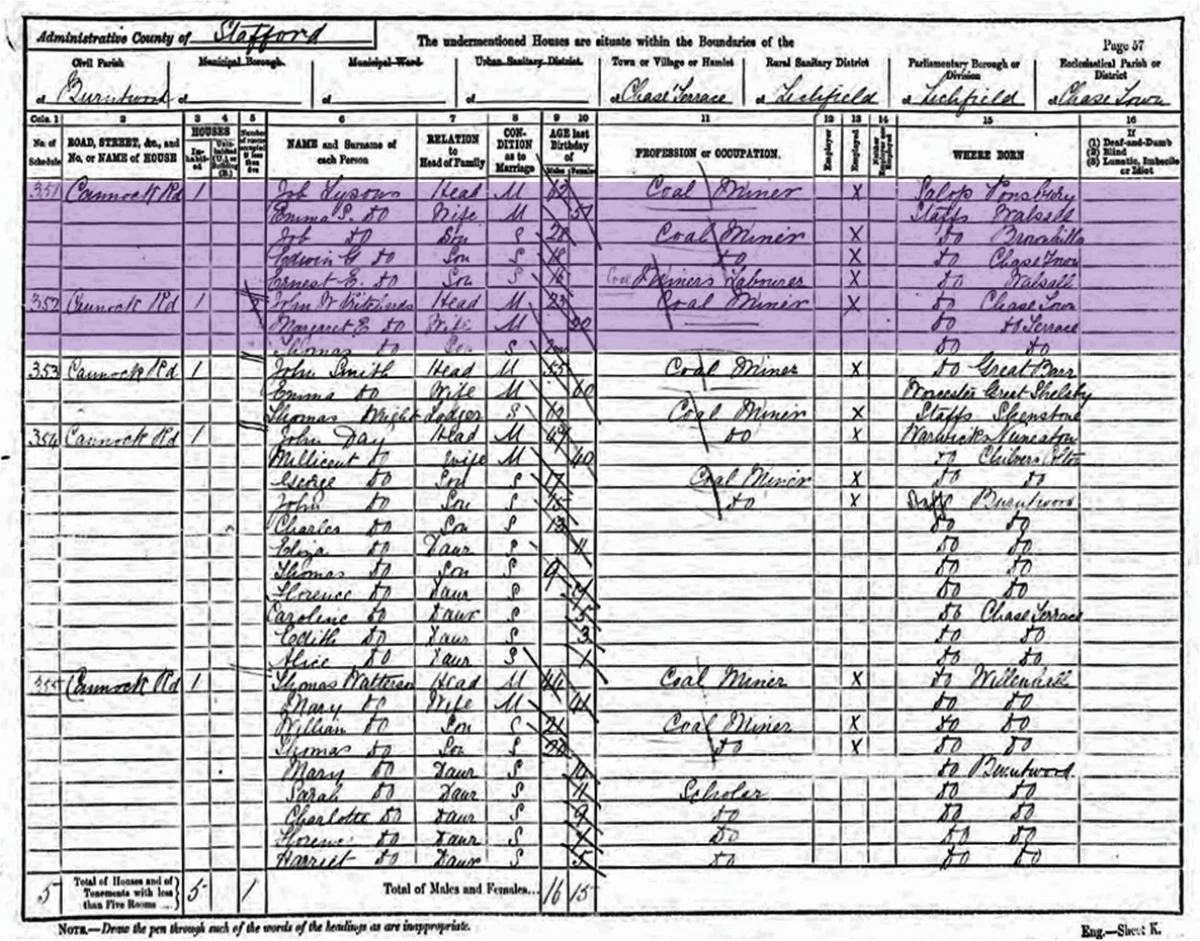 Administrative County of Stafford
The undermentioned Houses are situate within the Boundaries of the
Page 57
Civil Parish Municipal Borough Municipal Ward Urban Sanitary District Town or Village or Hamlet Rural Sanitary District Parliamentary Borough or Division Ecclesiastical Parish or District
of Burntwood of of of of Chase Terrace of Lichfield of Lichfield of Chase Town
Cols. 1 2 3 4 5 6 7 8 9 10 11 12 13 14 15 16
No. of Schedule ROAD, STREET, &c., and No. or NAME of HOUSE HOUSES Inhabited Uninhabited (U.) or Building (B.) Number of rooms occupied if less than five NAME and Surname of each Person RELATION to Head of Family CONDITION as to Marriage AGE last Birthday of Males Females PROFESSION or OCCUPATION Employer Employed Neither WHERE BORN If (1) Deaf-and-Dumb (2) Blind (3) Lunatic, Imbecile or Idiot
351 Cannock Rd 1 Job Lysons Head M Coal Miner X Salop Ponsbury
Emma S. do Wife M 51 Staffs Walsall
Job do Son S 28 Coal Miner X do Brownhills
Edwin G do Son S 18 do X do Chase Town
Ernest E. do Son S 16 Coal Miners Labourer X do Walsall
352 Cannock Rd 1 John W Pritchards Head M 23 Coal Miner X do Chase Town
Margaret E do Wife M 20 do do Terrace
Thomas do Son S do do
353 Cannock Rd 1 John Smith Head M 55 Coal Miner X do Great Barr
Emma do Wife M 60 Worcester Great
Thomas Wright Lodger S Coal Miner X Staffs Shenstone
354 Cannock Rd 1 John Day Head M do X Warwicks Nuneaton
Millicent do Wife M 40 do Chilvers Coton
George do Son S 17 Coal Miner X do do
John do Son S 15 do X Staff Burntwood
Charles do Son S 13 do do
Eliza do Daur S 11 do do
Thomas do Son S 9 do do
Florence do Daur S do do
Caroline do Daur S 5 do Chase Terrace
Edith do Daur S 3 do do
Alice do Daur S 1 do do
355 Cannock Rd 1 Thomas Watterson Head M 44 Coal Miner X do Willenhall
Mary do Wife M 41 do do
William do Son S 21 Coal Miner X do do
Thomas do Son S 20 do X do do
Mary do Daur S 14 do Burntwood
Sarah do Daur S 11 Scholar do do
Charlotte do Daur S 9 do do do
Daur S do do do
Harriet do Daur S 5 do do do
5 Total of Houses and of Tenements with less than Five Rooms 5 1 Total of Males and Females... 16 15
NOTE.—Draw the pen through such of the words of the headings as are inappropriate.
Eng.—Sheet K.